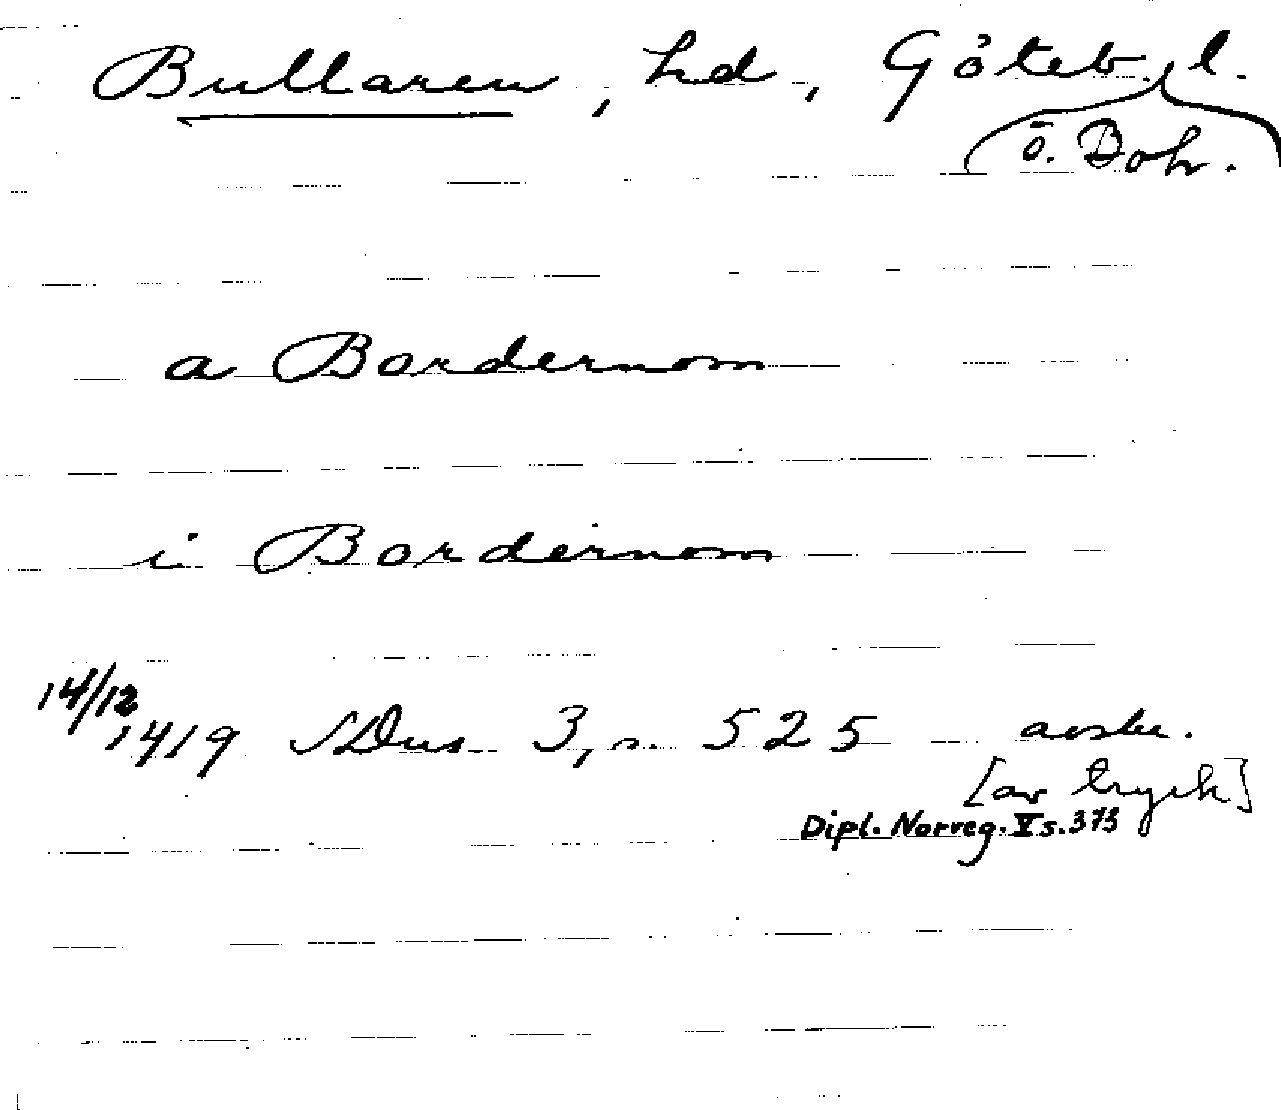 Bullaren, hd, Göteb. l.
o. Boh.
a Bordernom
i Bordernom
14/12
1419 SDns 3, s. 525 avskr.
[av tryck]
Dipl. Norveg. V s. 373